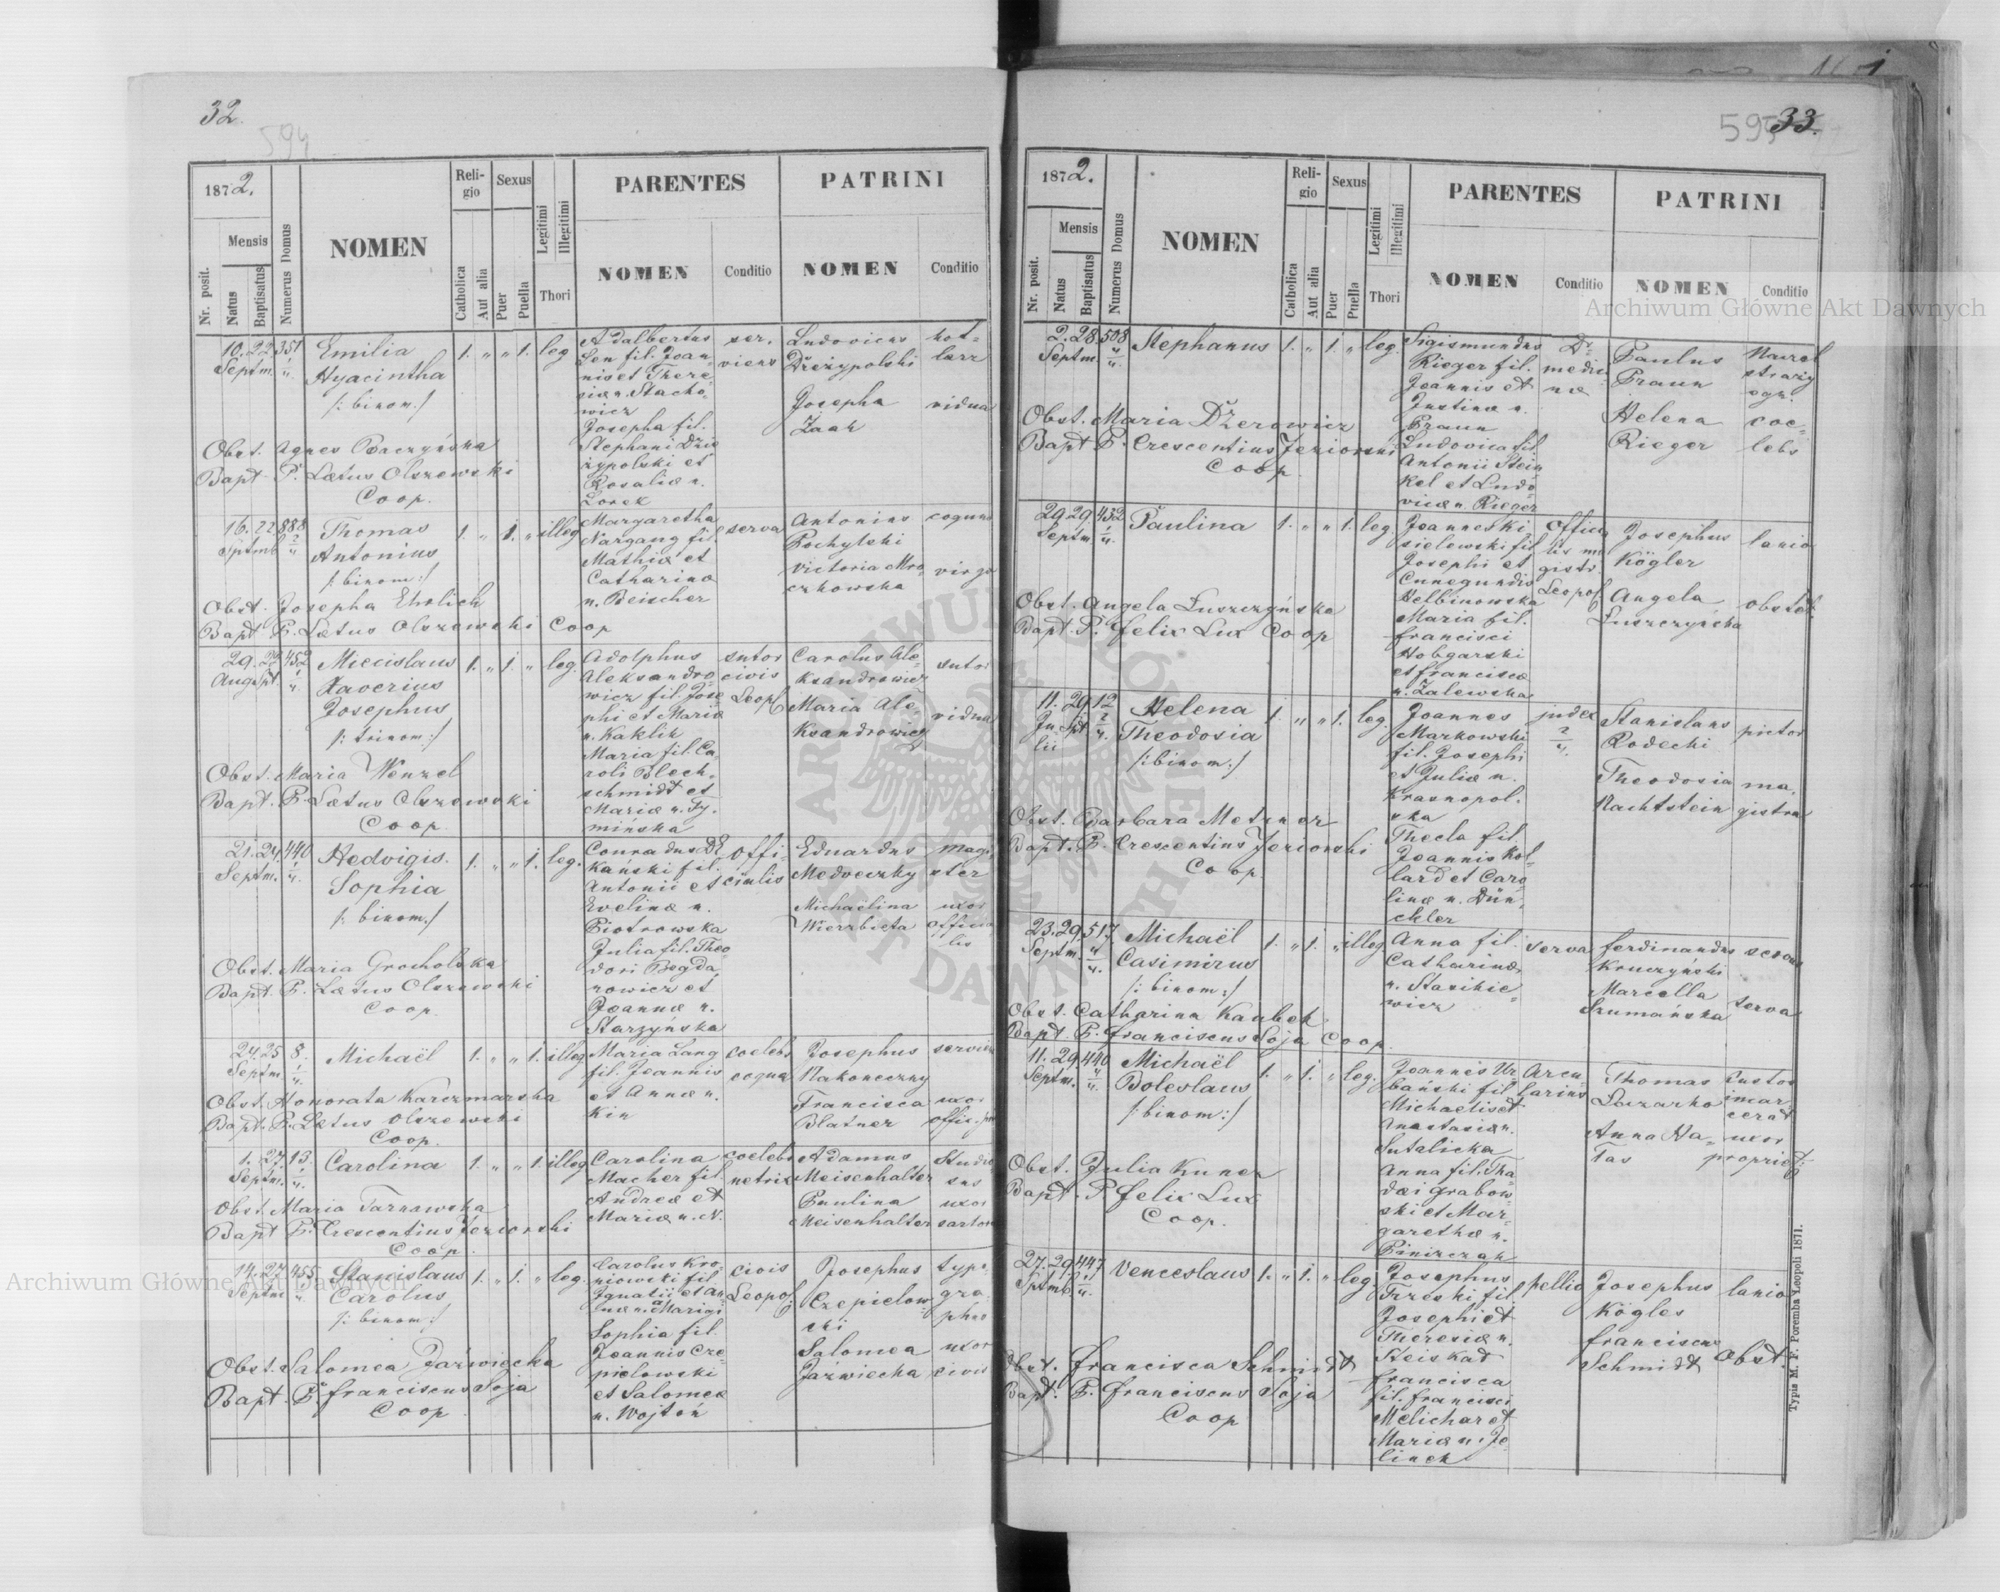 32.
594
1872.
Religio
Sexus
PARENTES
PATRINI
Mensis
Nr. posit.
Natus
Baptisatus
Numerus Domus
NOMEN
Catholica
Aut alia
Puer
Puella
Legitimi
Illegitimi
Thori
NOMEN
Conditio
NOMEN
Conditio
10. 22 351
Septm.
Emilia
Hyacintha
/: binom:/
1. " " 1. leg
Adalbertus
Len fil. Joan
nis et There
siæ n. Stacho
wicz
Josepha fil.
Stephani Dzie
żypolski et
Rosaliæ n.
Lorek
ser.
viens
Ludovicus
Dzieżypolski
Josepha
Zaak
vidua
Obst. Agnes Baczyńska
Bapt. P. Lætus Olszewski
Coop.
16. 22 888
Sptmb
Thomas
Antonius
/: binom:/
1. " 1. " illeg
Margaretha
Nargang fil
Mathiæ et
Catharinæ
n. Beischer
serva
Antonius
Pochylski
Victoria Mro
czkowska
virgo
Obst. Josepha Ehrlich
Bapt P. Lætus Olszewski Coop
29. 22 452
Aug Spt.
Miecislaus
Xaverius
Josephus
/: trinom:/
1. " 1. " leg.
Adolphus
Aleksandro
wicz fil. Jose
phi et Mariæ
n. Kaklik
Maria fil. Ca
roli Blech.
schmidt et
Mariæ n. Ty
mińska
sutor
civis
Leopol
Carolus Ale
ksandrowicz
Maria Ale.
ksandrowicz
sutor
vidua
Obst. Maria Wenzel
Bapt. P. Lætus Olszewski
Coop
21. 24 440
Septm.
Hedvigis.
Sophia
/: binom:/
1. " " 1. leg.
Conradus
kański fil.
Antonii et
Evelinæ n.
Piotrowska
Julia fil. Theo
dori Bogda
nowicz et
Joannæ n.
Starzyńska
offi-
cialis
Eduardus
Medveczky
Michaëlina
Wierzbięta
magi
ster
uxor
officia
lis
Obst. Maria Grocholska
Bapt. P. Lætus Olszewski
Coop.
24. 25 8.
Septm.
Michaël
1. " " 1. illeg
Maria Lang
fil. Joannis
et Annæ n.
Kin
coelebs
coqua
Josephus
Nakoneczny
Francisca
Blatner
uxor
Obst. Honorata Karczmarska
Bapt. P. Lætus Olszewski
Coop.
1. 27. 13.
Septm.
Carolina
1. " " 1. illeg
Carolina
Macher fil.
Andreæ et
Mariæ n. N.
coelebs
netrix
Adamus
Meisenhalter
Paulina
Meisenhalter
uxor
Obst. Maria Tarnawska
Bapt. P. Crescentius Jeziorski
Coop.
14. 27 455
Septm
Stanislaus
Carolus
/: binom:/
1. " 1. " leg.
Carolus Kro
niowski fil
Ignatii et An
Sophia fil.
Joannis Cze
pielowski
et Salomeæ
n. Wojtoń
civis
Leopol
Josephus
Czepielow
ski
Salomea
Jaźwiecka
typo
gra
phus
uxor
civis
Obst. Salomea Jaźwiecka
Bapt. P. Franciscus Soja
Coop
33.
1872.
Religio
Sexus
PARENTES
PATRINI
Mensis
Nr. posit.
Natus
Baptisatus
Numerus Domus
NOMEN
Catholica
Aut alia
Puer
Puella
Legitimi
Illegitimi
Thori
NOMEN
Conditio
NOMEN
Conditio
2. 28 508
Septm.
Stephanus
1. " 1. " leg.
Sigismundus
Rieger fil.
Joannis et
Justinæ n.
Praun
Ludovica fil
Antonii Stein
kel et Ludo
vicæ n. Rieger
Dr
medici
næ
Paulus
Praun
Helena
Rieger
coe-
lebs
Obst. Maria Dżerowicz
Bapt P. Crescentius Jeziorski
Coop
29 29 432
Septm
Paulina
1. " " 1. leg
Joannes Ki
sielewski fil
Josephi et
Cunegundis
Helbinowska
Maria fil.
Francisci
Hobgarski
et Franciscæ
n. Zalewska
officia
lis ma
gistr.
Leopol
Josephus
Kögler
Angela
Łuszczyńska
lanio
obstet.
Obst. Angela Łuszczyńska
Bapt. P. Felix Lux Coop
11. 29 12
Ju- Spt
lii
Helena
Theodosia
/: binom:/
1. " " 1. leg.
Joannes
Markowski
fil. Josephi
et Juliæ n.
Krasnopol.
ska
Thecla fil.
Joannis Kol-
lard et Caro
linæ n. Dün-
ckler
judex
Stanislaus
Rodecki
Theodosia
Nachtstein
pictor
ma.
gistra
Obst. Barbara Metzner
Bapt. P. Crescentius Jeziorski
Coop.
23. 29 517
Septm.
Michaël
Casimirus
/: binom:/
1. " 1. " illeg
Anna fil.
Catharinæ
n. Stasikie-
wicz
serva
Ferdinandus
Kruczyński
Marcella
Szumańska
servus
serva
Obst. Catharina Kaubek.
Bapt. P. Franciscus Soja Coop.
11. 29 440
Septm.
Michaël
Boleslaus
/: binom:/
1. " 1. " leg.
Joannes Ur
bański fil
Michaelis et
Anastasiæ n.
Sutalicka
Anna fil. Tha
dæi Grabow-
ski et Mar-
garethæ n.
Pinizczak
Arcu-
larius
Thomas
Lazarko
Anna Ha-
tas
custos
incar
cerat
uxor
propriet.
Obst. Julia Kuner
Bapt. P. Felix Lux
Coop.
27. 29 447
Sptmb
Venceslaus
1. " 1. " leg.
Josephus
Trzeski fil.
Josephi et
Theresiæ n.
Steiskat
Francisca
fil. Francisci
Melichar et
Mariæ n. Je
linek
pellio
Josephus
Kögler
Franciscus
Schmidt
lanio
Obst.
Obst. Francisca Schmidt
Bapt. P. Franciscus Soja
Coop
Typis M. F. Poremba Leopoli 1871.
Archiwum Główne Akt Dawnych
Archiwum Główne Akt Dawnych
ARCHIWUM GŁÓWNE AKT DAWNYCH